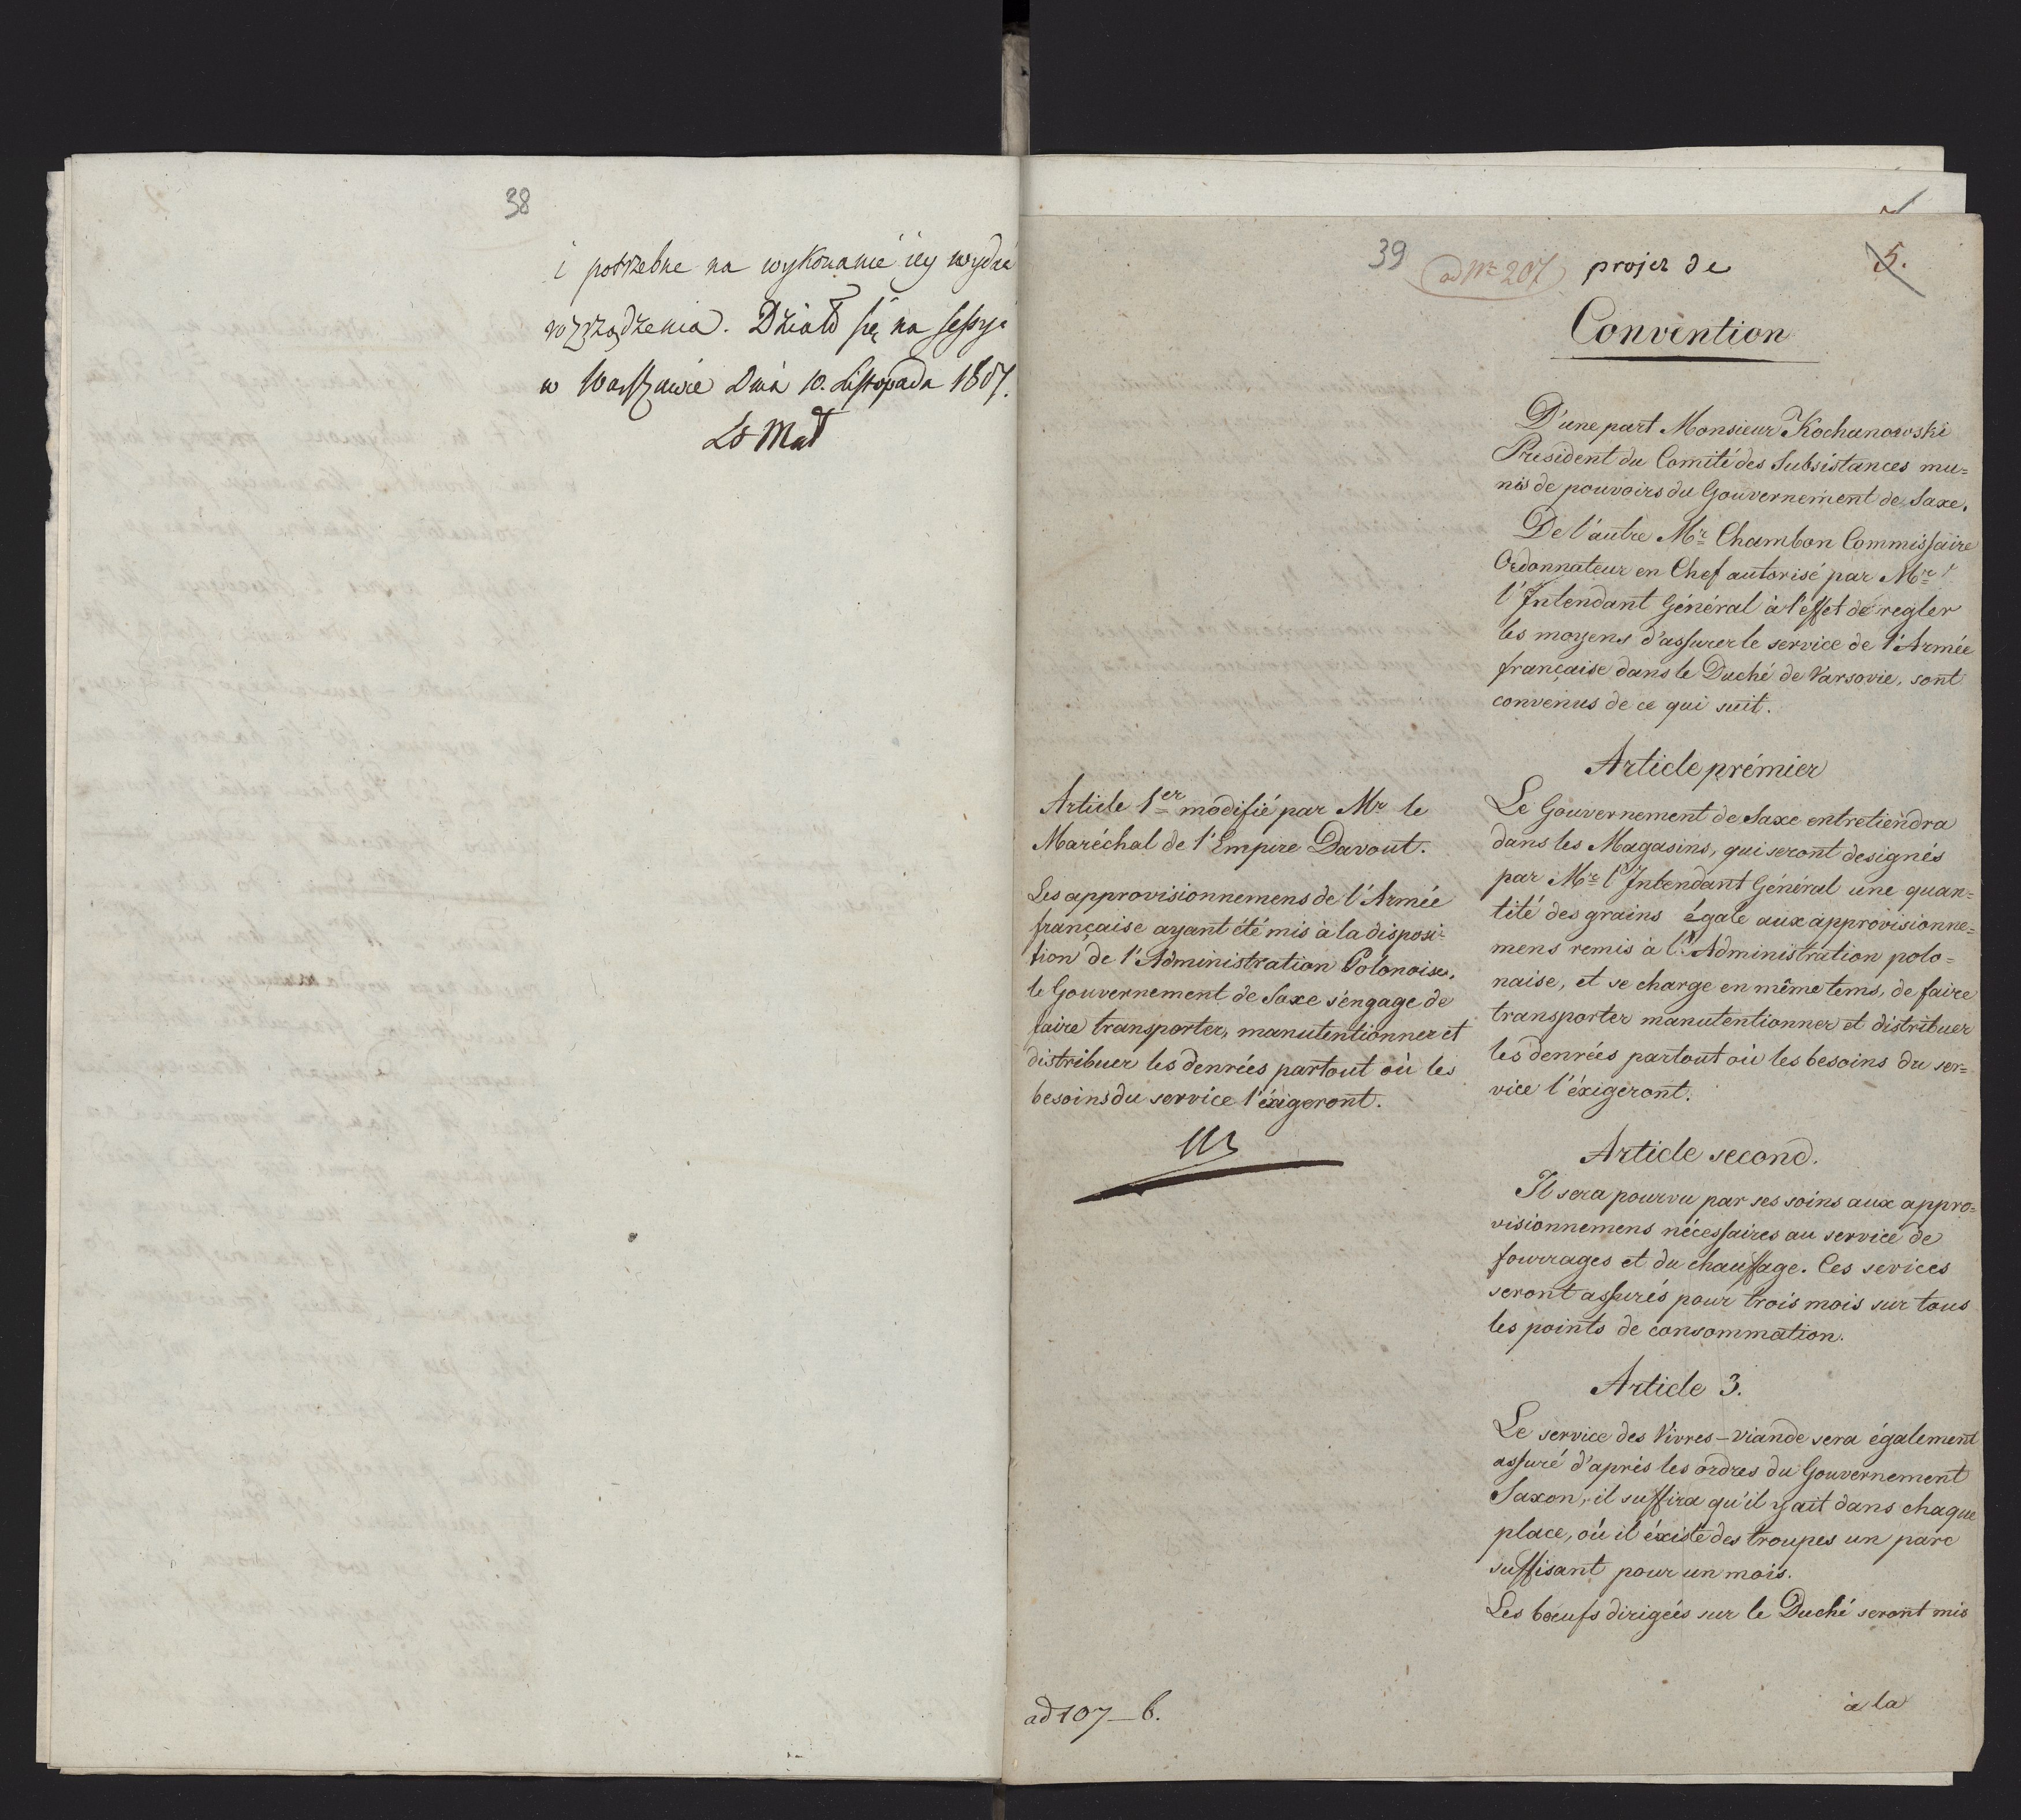 38
i potrzebne na wykonanie iey wydać
rozrządzenia. Działo się na Sessyi
w Warszawie Dnia 10. Listopada 1807.
39
ad Nr 207
projet de
5.
Convention
D'une part Monsieur Kochanowski
President du Comité des Subsistances mu=
nis de pouvoirs du Gouvernement de Saxe.
De l'autre Mr. Chambon Commissaire
Ordonnateur en Chef autorisé par Mr.
l'Intendant Général à l'effet de regler
les moyens d'assurer le service de l'Armée
française dans le Duché de Varsovie, sont
convenus de ce qui suit.
Article prémier
Le Gouvernement de Saxe entretiendra
dans les Magasins, qui seront designés
par Mr. l'Intendant Général une quan=
tité des grains égale aux approvisionne=
mens remis à l'Administration polo=
naise, et se charge en même tems, de faire
transporter manutentionner et distribuer
les denrées partout où les besoins du ser=
vice l'éxigeront.
Article 1er modifié par Mr le
Maréchal de l'Empire Davout.
Les approvisionnemens de l'Armée
française ayant été mis à la disposi=
tion de l'Administration Polonoise,
le Gouvernement de Saxe s'engage de
faire transporter, manutentionner et
distribuer les denrées partout où les
besoins du service l'éxigeront.
Article second.
Il sera pourvu par ses soins aux appro=
visionnemens nécessaires au service de
fourrages et du chauffage. Ces sevices
seront assurés pour trois mois sur tous
les points de consommation.
Article 3.
Le service des Vivres-viande sera également
assuré d'après les ordres du Gouvernement
Saxon, il suffira qu'il y ait dans chaque
place, où il éxiste des troupes un parc
suffisant pour un mois.
Les bœufs dirigées sur le Duché seront mis
à la
ad 107_b.